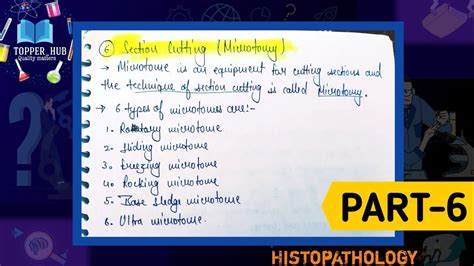 TOPPER_HUB
Quality matters
⑥ Section Cutting (Microtomy)
Microtome is an equipment for cutting sections and
the technique of section cutting is called Microtomy.
→ 6 types of microtomes are:-
1. Rotatory microtome
2. Sliding microtome
3. Freezing microtome
4. Rocking microtome
5. Base sledge microtome
6. Ultra microtome.
PART-6
HISTOPATHOLOGY